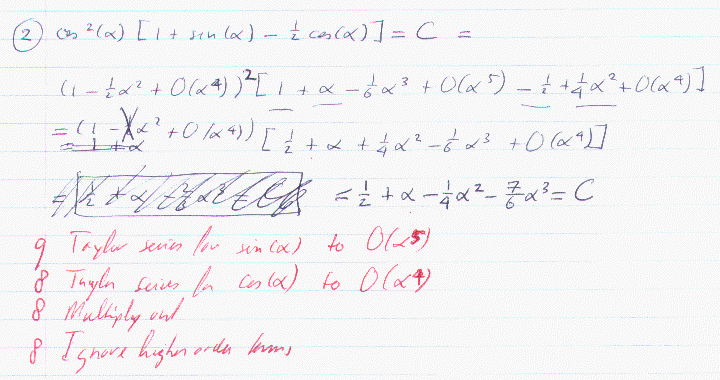 ② cos²(α) [1 + sin(α) − ½ cos(α)] = C =
(1 − ½α² + O(α⁴))² [1 + α − ⅙α³ + O(α⁵) − ½ + ¼α² + O(α⁴)]
= (1 − α² + O(α⁴)) [½ + α + ¼α² − ⅙α³ + O(α⁴)]
= ½ + α − ¼α² − 7/6 α³ = C
9 Taylor series for sin(α) to O(α⁵)
8 Taylor series for cos(α) to O(α⁴)
8 Multiply out
8 Ignore higher order terms